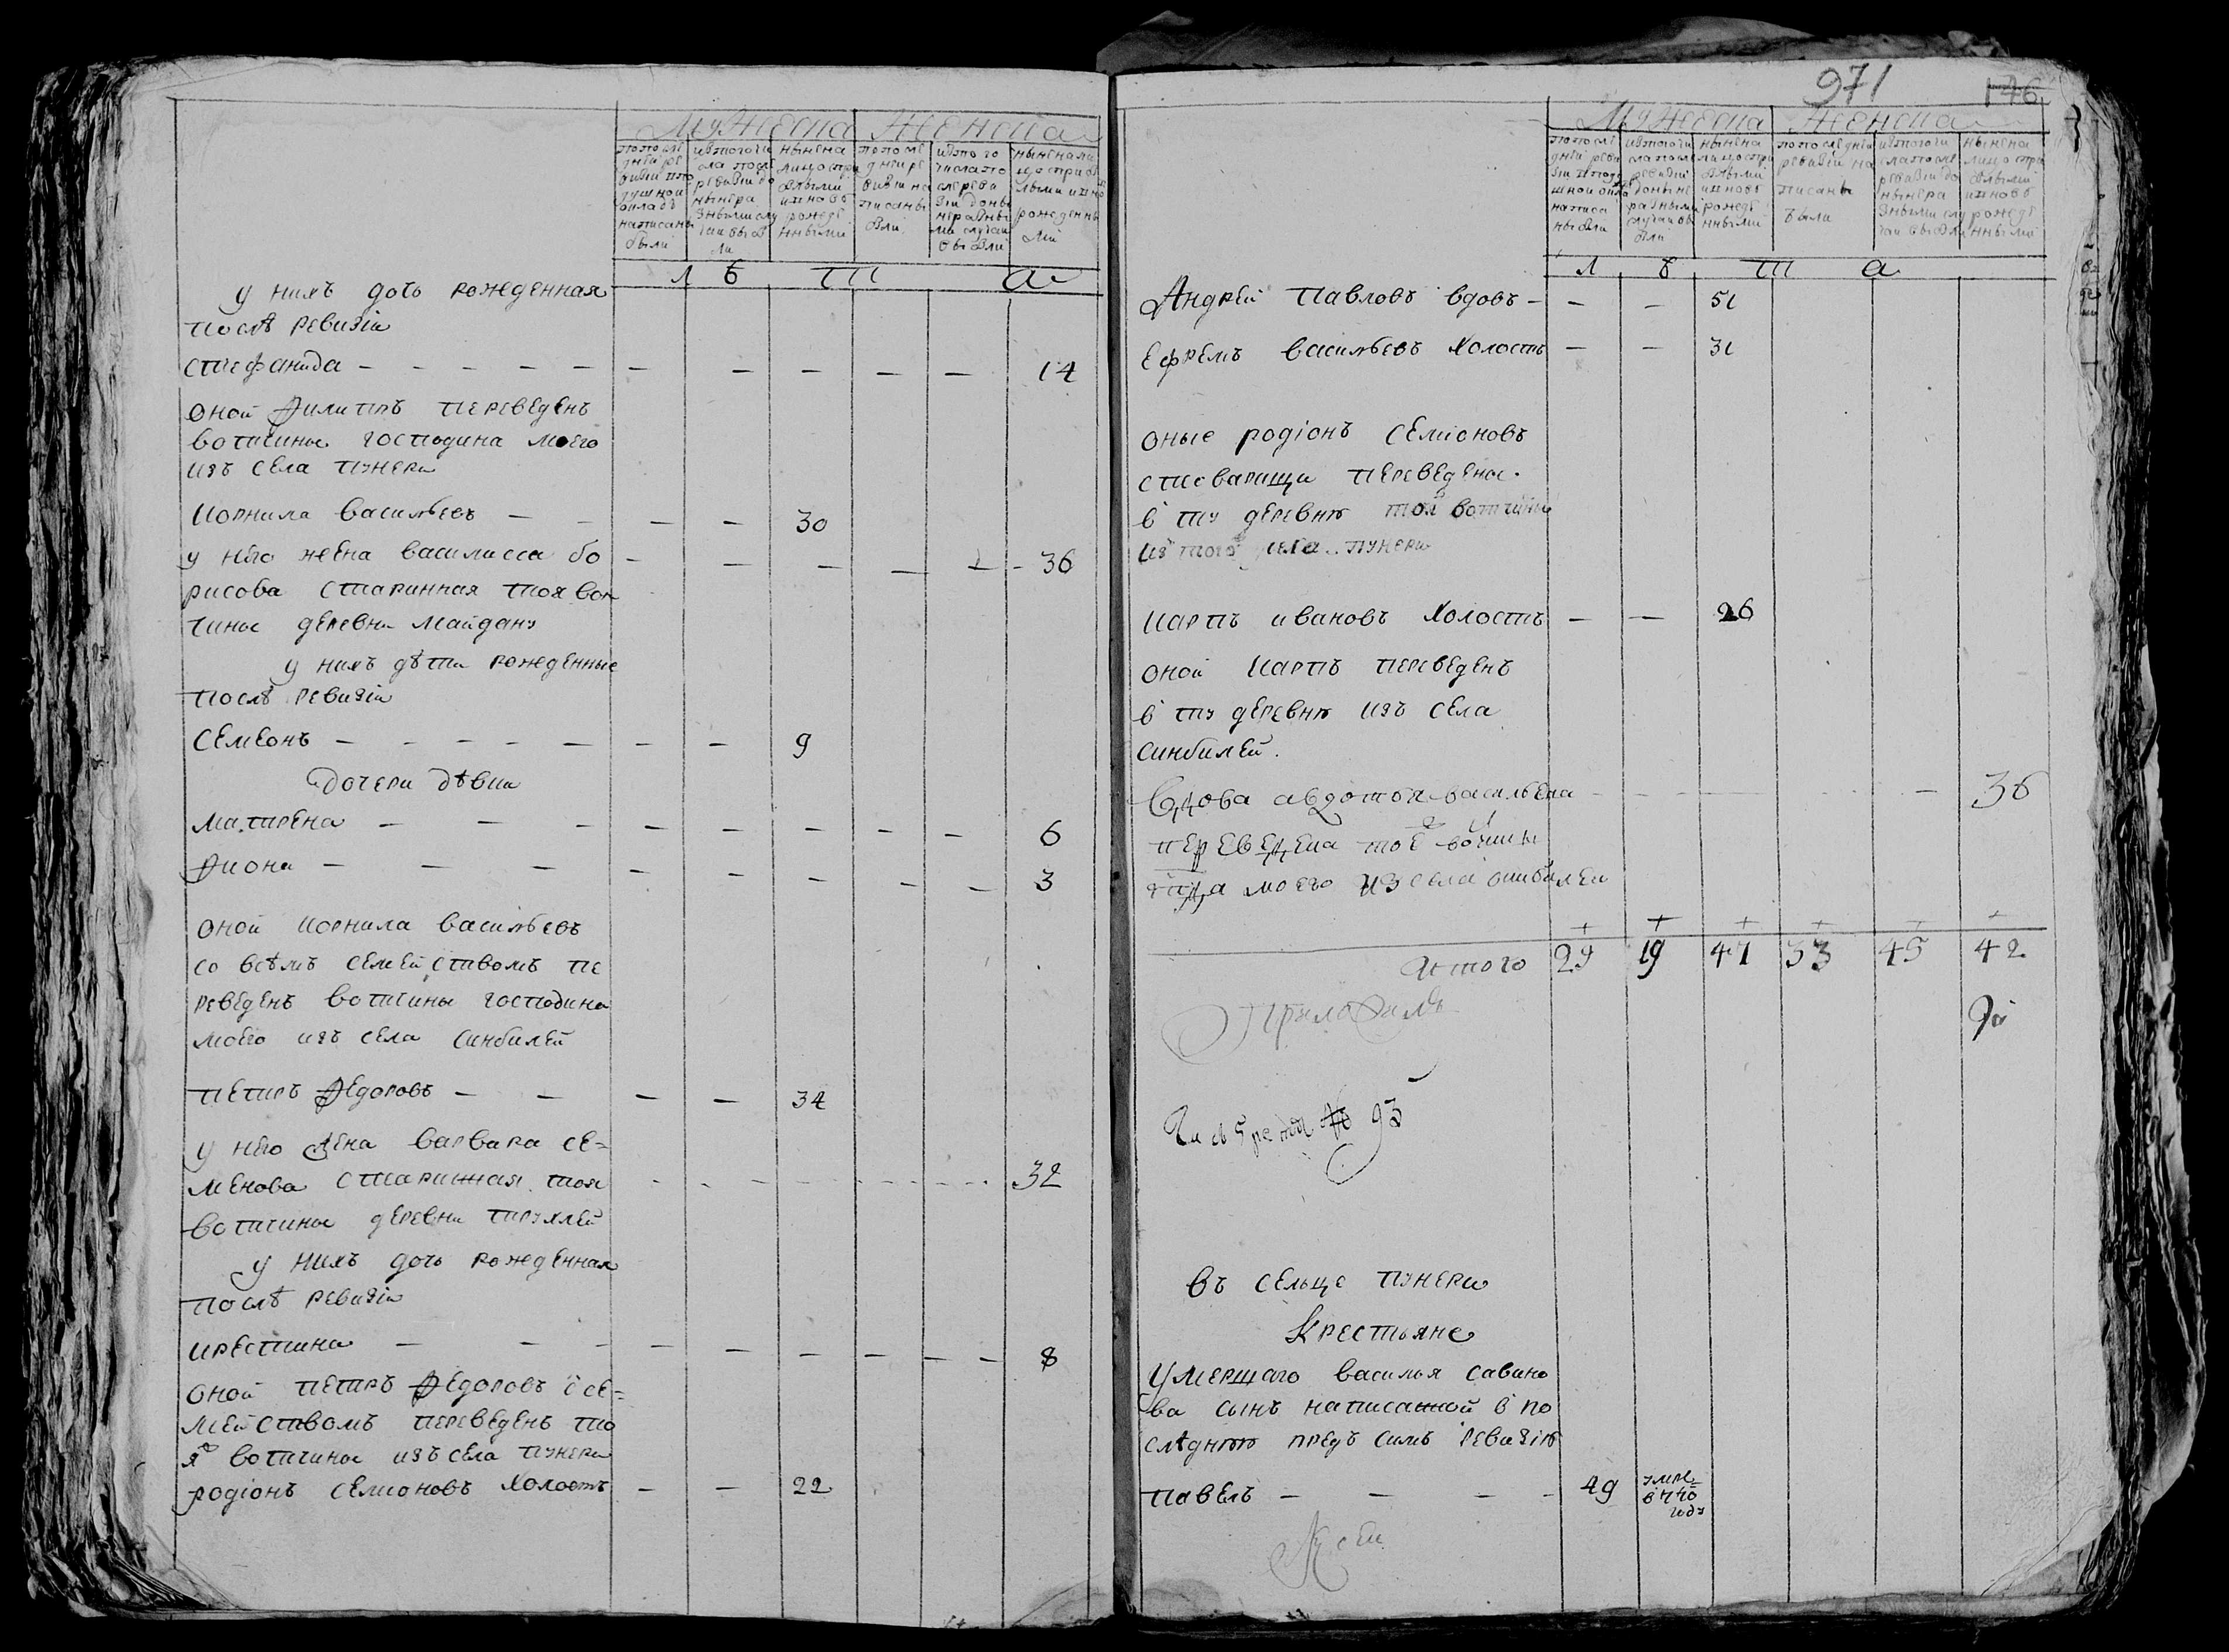 Мужеска Женска
попосле
дней ре
визии по
душной
окладъ
написаны
были
изтогочи
сла после
ревизiи до
ныне ра
зными слу
чаи выбы
ли
ныне на
лицо стри
былыми
и вновь
рожде
нными
попосле
дней ре
визiи на
писаны
были
изтого
числа по
сле реви
зiи доны
не разны
ми случаи
выбыли
ныне нали
цо стрибы
лыми и вно
рожденны
ми
л ѣ т а
у нихъ дочь рожденная
послѣ ревизiи
Стефанида — — — — — — — — — — 14
оной Филиппъ переведенъ
вотчины господина моего
изъ села пунери
Корнила васильевъ — — — — 30
у него жена василиса бо — — — — — 36
рисова старинная тоя вот
чины деревни майдану
у нихъ дѣти рожденные
послѣ ревизiи
Семеонъ — — — — — — — 9
дочери дѣвки
Матрена — — — — — — — — 6
Фиона — — — — — — — — 3
оной корнила васильевъ
со всѣмъ семействомъ пе
реведенъ вотчины господина
моего изъ села синбилей
Петръ Федоровъ — — — — 34
у него жена варвара се=
менова старинная тоя — — — — 32
вотчины деревни трухлей
у нихъ дочь рожденная
послѣ ревизiи
крестина — — — — — — — — — 8
оной петръ Федоровъ с се=
мействомъ переведенъ то
я вотчины изъ села пунери
родiонъ семионовъ холостъ — — 22
971 146
Мужеска Женска
попосле
дней реви
зiи
написа
ны были
изтогочи
сла после
ревизiи
доныне
разными
случаи вы
были
ныне на
лицо стри
былыми
и вновь
рожде
нными
попоследней
ревизiи на
писаны
были
изтогочи
сла после
ревизiи до
ныне ра
зными слу
чаи выбыли
ныне на
лицо стри
былыми
и вновь
рожде
нными
л ѣ т а
Андрей Павловъ вдовъ — — — 51
Ефремъ васильевъ холостъ — — 31
оные родiонъ семионовъ
стоварищи переведены
в ту деревню тоя вотчины
из того села пунери
Карпъ ивановъ холостъ — — 26
оной Карпъ переведенъ
в ту деревню изъ села
синбилей.
Вдова авдотья васильева — — — 36
переведена тое вотчины
гдна моего из села синбилеи
Итого 29 19 47 33 45 42
въ сельце пунери
Крестьяне
умершаго василья савино
ва сынъ написанной в по
следнюю предъ симъ ревизiю
Павелъ — — — — 49 умре
в 770
году